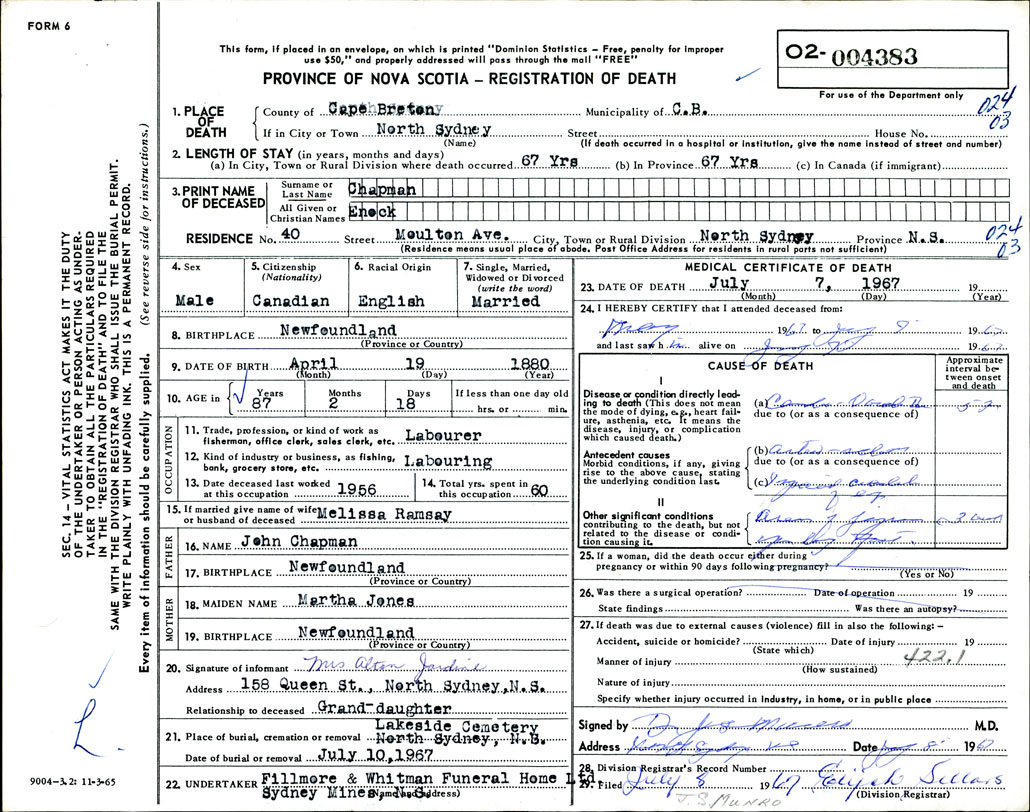 FORM 6
This form, if placed in an envelope, on which is printed "Dominion Statistics – Free, penalty for improper
use $50," and properly addressed will pass through the mail "FREE"
PROVINCE OF NOVA SCOTIA – REGISTRATION OF DEATH
02- 004383
For use of the Department only
024
03
1. PLACE OF DEATH
County of Cape Breton Municipality of C.B.
If in City or Town North Sydney Street House No.
(Name) (If death occurred in a hospital or institution, give the name instead of street and number)
2. LENGTH OF STAY (in years, months and days)
(a) In City, Town or Rural Division where death occurred 67 Yrs (b) In Province 67 Yrs (c) In Canada (if immigrant)
3. PRINT NAME OF DECEASED
Surname or Last Name Chapman
All Given or Christian Names Enock
RESIDENCE No. 40 Street Moulton Ave. City, Town or Rural Division North Sydney Province N.S.
024
03
(Residence means usual place of abode. Post Office Address for residents in rural parts not sufficient)
4. Sex
Male
5. Citizenship
(Nationality)
Canadian
6. Racial Origin
English
7. Single, Married,
Widowed or Divorced
(write the word)
Married
8. BIRTHPLACE Newfoundland
(Province or Country)
9. DATE OF BIRTH April 19 1880
(Month) (Day) (Year)
10. AGE in Years Months Days If less than one day old
87 2 18 hrs. or min.
OCCUPATION
11. Trade, profession, or kind of work as
fisherman, office clerk, sales clerk, etc. Labourer
12. Kind of industry or business, as fishing,
bank, grocery store, etc. Labouring
13. Date deceased last worked
at this occupation 1956
14. Total yrs. spent in
this occupation 60
15. If married give name of wife
or husband of deceased Melissa Ramsay
FATHER
16. NAME John Chapman
17. BIRTHPLACE Newfoundland
(Province or Country)
MOTHER
18. MAIDEN NAME Martha Jones
19. BIRTHPLACE Newfoundland
(Province or Country)
20. Signature of informant Mrs Alton Jardine
Address 158 Queen St., North Sydney, N.S.
Relationship to deceased Grand-daughter
21. Place of burial, cremation or removal Lakeside Cemetery
North Sydney, N.B.
Date of burial or removal July 10, 1967
22. UNDERTAKER Fillmore & Whitman Funeral Home Ltd.
Sydney Mines, N.S.
(Name and address)
MEDICAL CERTIFICATE OF DEATH
23. DATE OF DEATH July 7, 1967 19
(Month) (Day) (Year)
24. I HEREBY CERTIFY that I attended deceased from:
1967 to 1967
and last saw h im alive on 1967
CAUSE OF DEATH
Approximate
interval be-
tween onset
and death
I
Disease or condition directly lead-
ing to death (This does not mean
the mode of dying, e.g., heart fail-
ure, asthenia, etc. It means the
disease, injury, or complication
which caused death.)
(a)
due to (or as a consequence of)
Antecedent causes
Morbid conditions, if any, giving
rise to the above cause, stating
the underlying condition last.
(b)
due to (or as a consequence of)
(c)
II
Other significant conditions
contributing to the death, but not
related to the disease or condi-
tion causing it.
25. If a woman, did the death occur either during
pregnancy or within 90 days following pregnancy?
(Yes or No)
26. Was there a surgical operation? Date of operation 19
State findings Was there an autopsy?
27. If death was due to external causes (violence) fill in also the following: –
Accident, suicide or homicide? Date of injury 19
(State which)
Manner of injury 422.1
(How sustained)
Nature of injury
Specify whether injury occurred in Industry, in home, or in public place
Signed by M.D.
Address Date 8 1967
28. Division Registrar's Record Number
29. Filed July 8 1967 Elijah Sellars
(Division Registrar)
J.S. MUNRO
SEC. 14 – VITAL STATISTICS ACT MAKES IT THE DUTY
OF THE UNDERTAKER OR PERSON ACTING AS UNDER-
TAKER TO OBTAIN ALL THE PARTICULARS REQUIRED
IN THE "REGISTRATION OF DEATH" AND TO FILE THE
SAME WITH THE DIVISION REGISTRAR WHO SHALL ISSUE THE BURIAL PERMIT.
WRITE PLAINLY WITH UNFADING INK. THIS IS A PERMANENT RECORD.
Every item of information should be carefully supplied. (See reverse side for instructions.)
L.
9004-3.2: 11-3-65